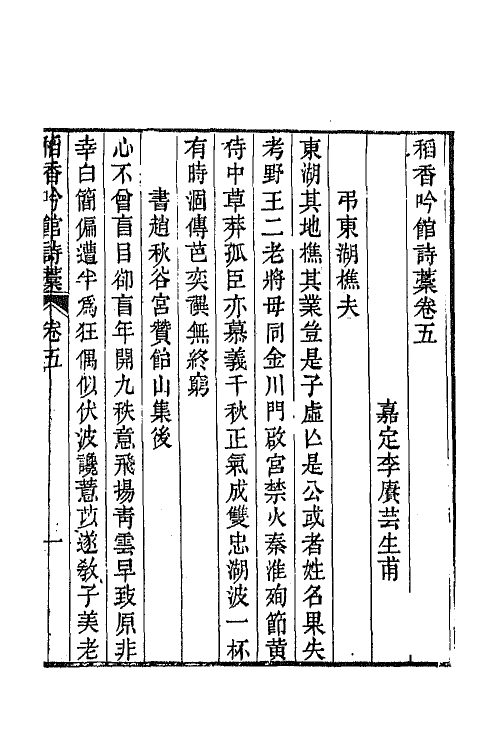 稻香吟館詩藳卷五
嘉定李賡芸生甫
弔東湖樵夫
東湖其地樵其業豈是子虛亾是公或者姓名果失
考野王二老將毋同金川門啟宮禁火秦淮殉節黃
侍中草莽孤臣亦慕義千秋正氣成雙忠湖波一杯
有時涸傳芭奕禩無終窮
書趙秋谷宮贊飴山集後
心不曾盲目卻盲年開九秩意飛揚靑雲早致原非
幸白簡偏遭半爲狂偶似伏波讒薏苡遂敎子美老
稻香吟館詩藳
卷五
一